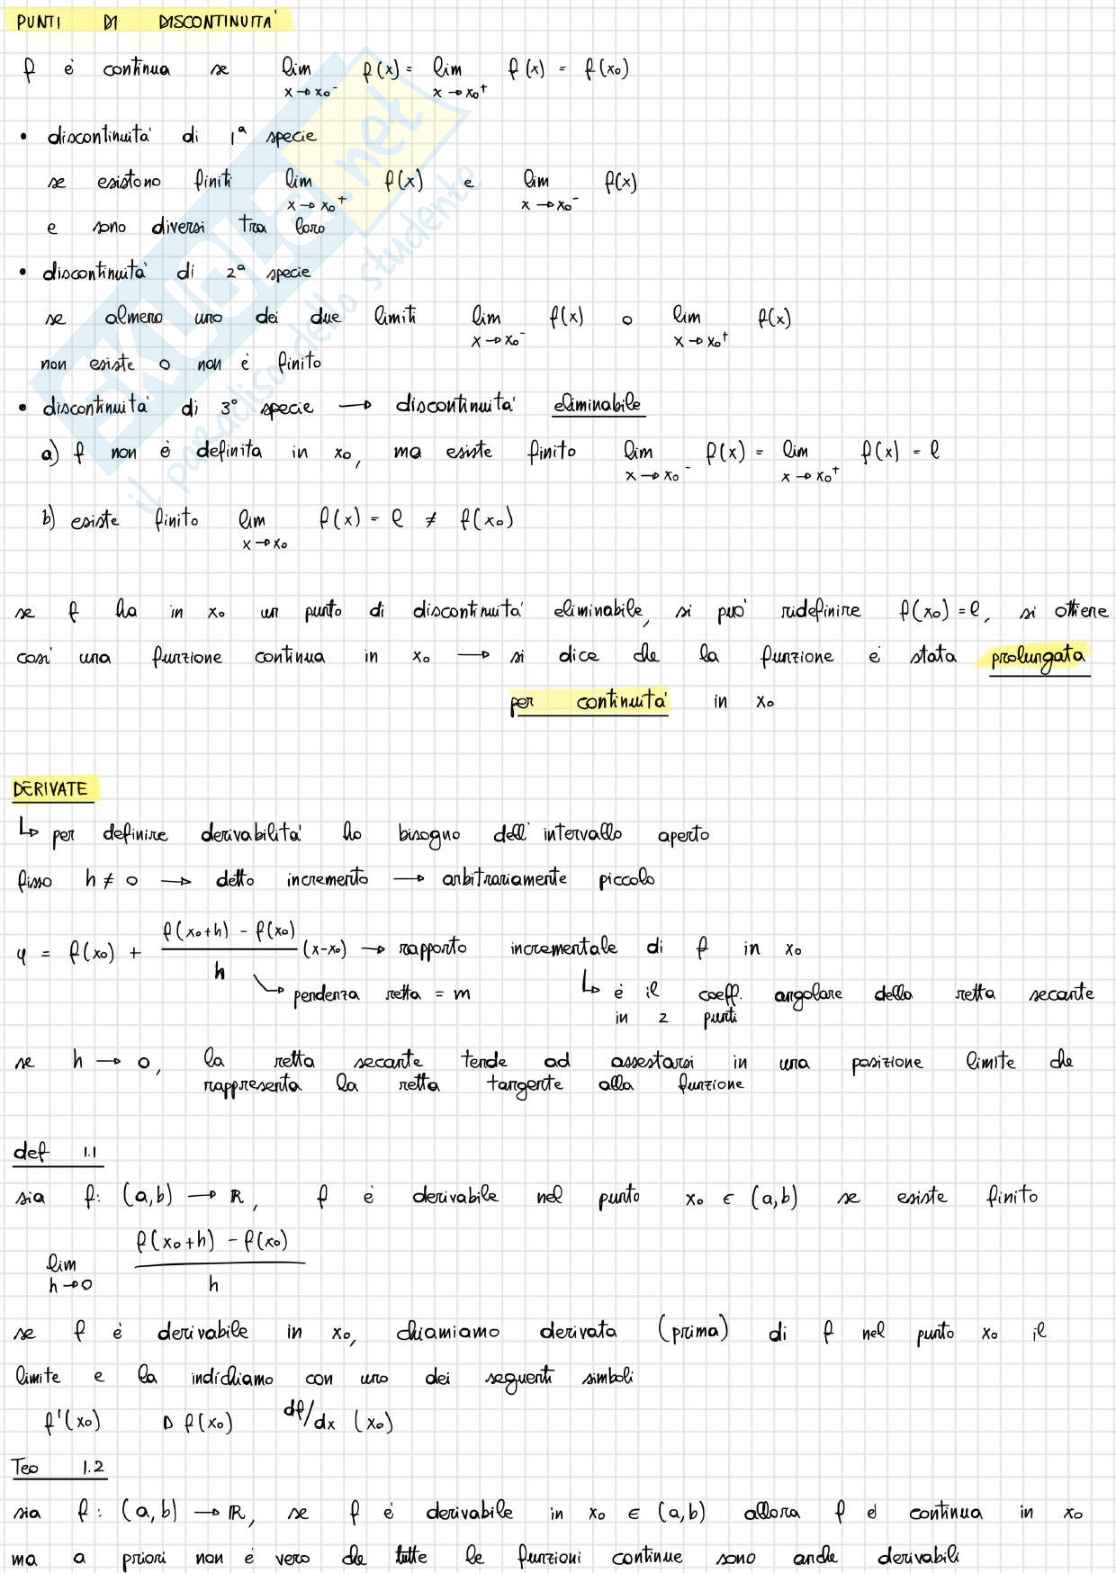 PUNTI DI DISCONTINUITA'
f è continua se lim x→x₀⁻ f(x) = lim x→x₀⁺ f(x) = f(x₀)
• discontinuità di 1ª specie
se esistono finiti lim x→x₀⁺ f(x) e lim x→x₀⁻ f(x)
e sono diversi tra loro
• discontinuità di 2ª specie
se almeno uno dei due limiti lim x→x₀⁻ f(x) o lim x→x₀⁺ f(x)
non esiste o non è finito
• discontinuità di 3° specie → discontinuità eliminabile
a) f non è definita in x₀, ma esiste finito lim x→x₀⁻ f(x) = lim x→x₀⁺ f(x) = l
b) esiste finito lim x→x₀ f(x) = l ≠ f(x₀)
se f ha in x₀ un punto di discontinuità eliminabile, si può ridefinire f(x₀) = l, si ottiene
così una funzione continua in x₀ → si dice che la funzione è stata prolungata
per continuità in x₀
DERIVATE
↳ per definire derivabilità ho bisogno dell'intervallo aperto
fisso h ≠ 0 → detto incremento → arbitrariamente piccolo
y = f(x₀) + (f(x₀+h) - f(x₀))/h (x-x₀) → rapporto incrementale di f in x₀
↳ pendenza retta = m ↳ è il coeff. angolare della retta secante
in 2 punti
se h → 0, la retta secante tende ad assestarsi in una posizione limite che
rappresenta la retta tangente alla funzione
def 1.1
sia f: (a,b) → ℝ, f è derivabile nel punto x₀ ∈ (a,b) se esiste finito
lim h→0 (f(x₀+h) - f(x₀))/h
se f è derivabile in x₀, chiamiamo derivata (prima) di f nel punto x₀ il
limite e la indichiamo con uno dei seguenti simboli
f'(x₀) D f(x₀) df/dx (x₀)
Teo 1.2
sia f: (a,b) → ℝ, se f è derivabile in x₀ ∈ (a,b) allora f è continua in x₀
ma a priori non è vero che tutte le funzioni continue sono anche derivabili
SKUOLA.net
il paradiso dello studente